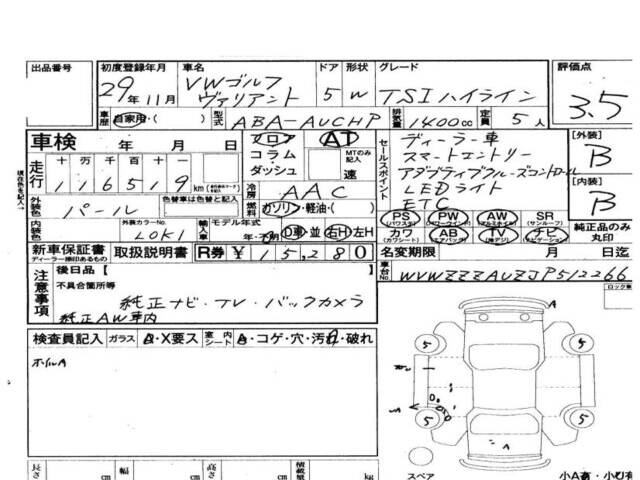 出品番号
初度登録年月
29年11月
車名
VWゴルフ
ヴァリアント
ドア
5
形状
W
グレード
TSIハイライン
評価点
3.5
車歴 自家用・( )
型式 ABA-AUCHP
排気量 1400cc
定員 5人
車検 年 月 日
フロア
コラム
ダッシュ
AT
MTのみ記入
速
セールスポイント
ディーラー車
スマートエントリー
アダプティブクルーズコントロール
LEDライト
ETC
[外装]
B
[内装]
B
純正品のみ
丸印
現在色を記入→
走行
十 万 千 百 十 一
116519
km
冷房
AAC
外装色
パール
色替車は色替と記入
燃料
ガソリン・軽油・( )
PS (パワステ)
PW (パワーウインド)
AW (アルミホイル)
SR (サンルーフ)
カワ (カワシート)
AB (エアバック)
TV (地デジ)
ナビ (ナビゲーション)
内装色
外装カラーNo.
LOK1
輸入車
モデル年式
年・不明
D車・並
右H・左H
新車保証書
ディーラー捺印あるもの
取扱説明書
R券 ¥15,280
名変期限 月 日迄
車台No.
WVWZZZAUZJP512266
注意事項
後日品【 】
不具合箇所等
純正ナビ・TV・バックカメラ
純正AW車内
ロック車
検査員記入
ガラス
A・X要ス
室内シート
A・コゲ・穴・汚れ・破れ
ホイルA
5
5
5
5
A
A
スペア
長さ cm
幅 cm
高さ cm
積載量 kg